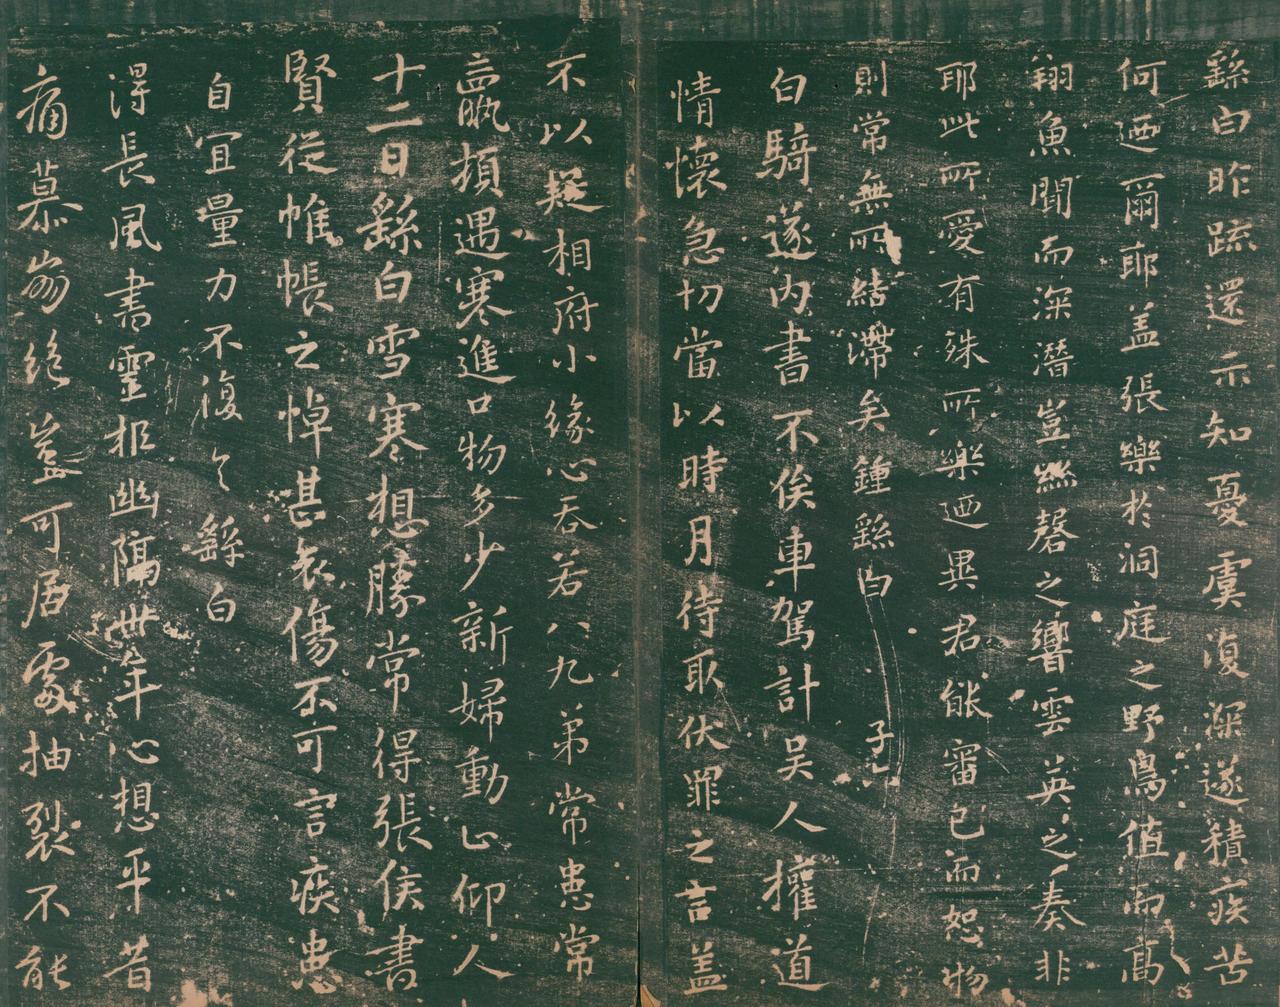 繇白昨疏還示知憂虞復深遂積疾苦
何迺爾耶盖張樂於洞庭之野鳥值而高
翔魚聞而深潛豈絲磬之響雲英之奏非
耶此所愛有殊所樂迺異君能審己而恕物
則常無所結滯矣鍾繇白
白騎遂內書不俟車駕計吴人權道
情懷急切當以時月待取伏罪之言盖
不以疑相府小緣心吞若八九弟常患常
羸頓遇寒進口物多少新婦動止仰人
十二日繇白雪寒想勝常得張侯書
賢從帷帳之悼甚哀傷不可言疾患
自宜量力不復〻繇白
得長風書靈柩幽隔卅年心想平昔
痛慕崩絕豈可居處抽裂不能